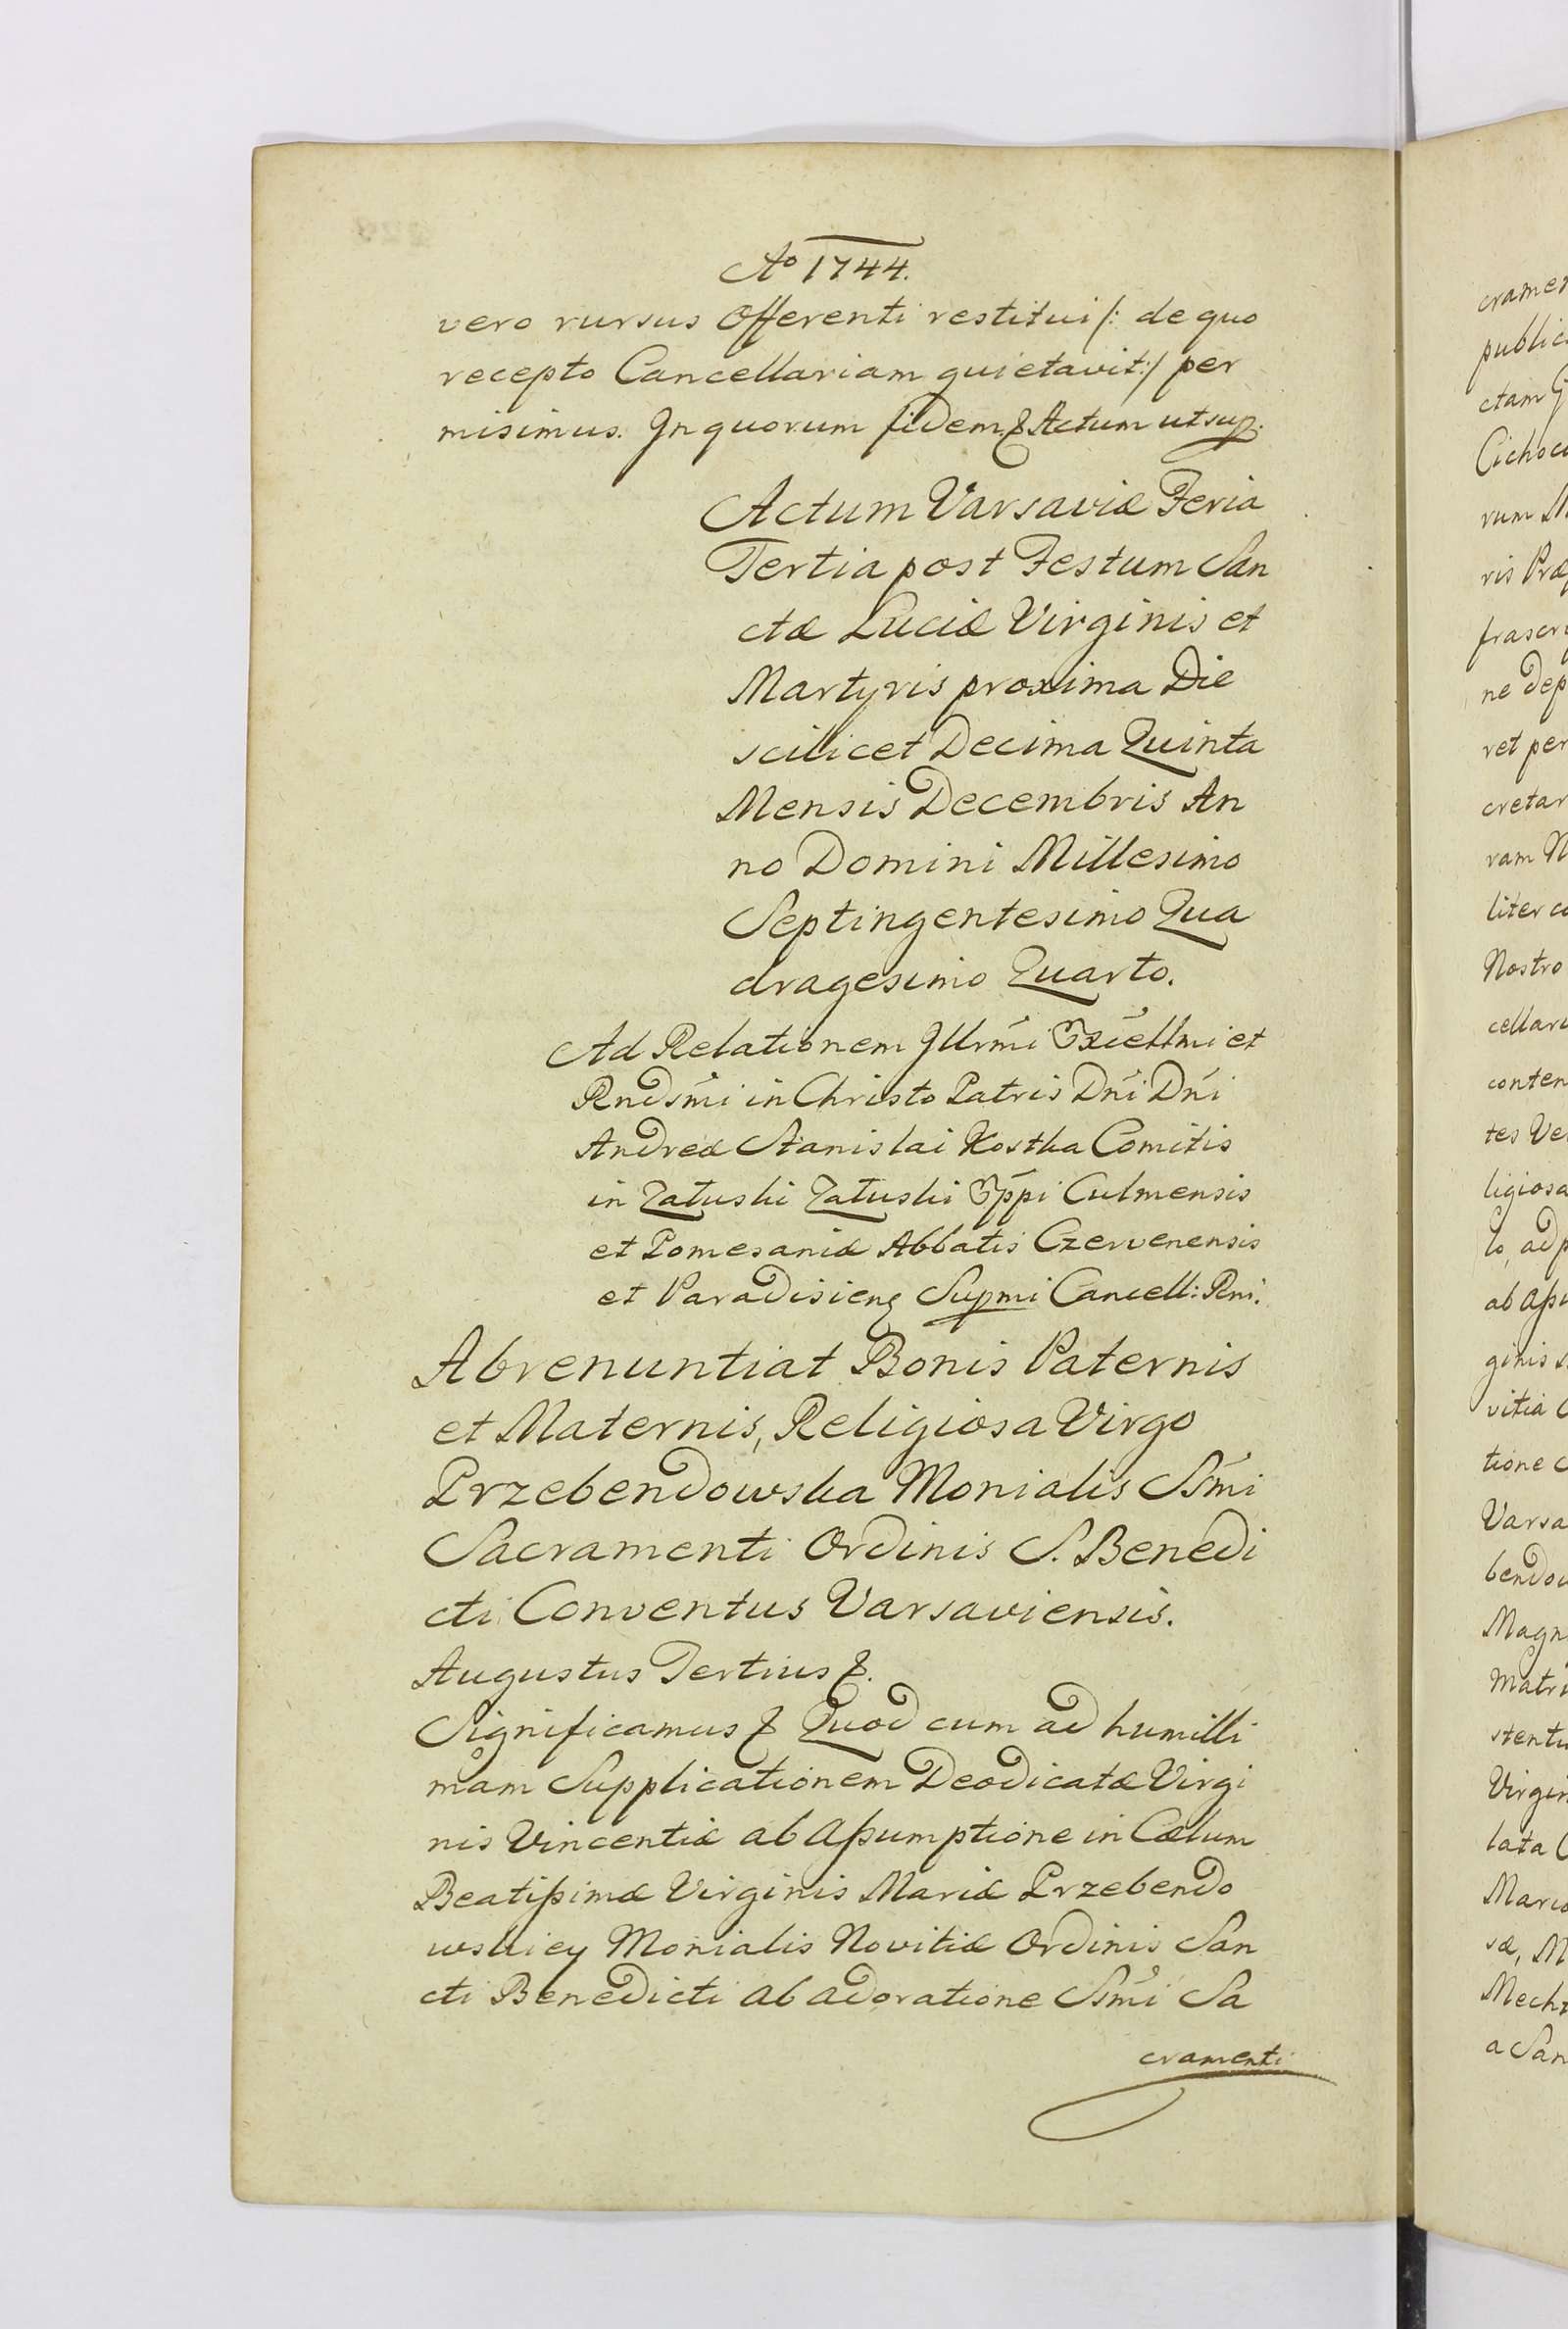 Ao 1744.
vero rursus Offerenti restitui /: de quo
recepto Cancellariam quietavit :/ per
misimus. In quorum fidem & Actum ut sup.
Actum Varsaviæ Feria
Tertia post Festum San
ctæ Luciæ Virginis et
Martyris proxima Die
scilicet Decima Quinta
Mensis Decembris An
no Domini Millesimo
Septingentesimo Qua
dragesimo Quarto.
Ad Relationem Illrmi Excellmi et
Rndsmi in Christo Patris Dni Dni
Andreæ Stanislai Kostka Comitis
in Załuski Załuski Eppi Culmensis
et Pomesaniæ Abbatis Czervenensis
et Paradisieng Supmi Cancell: Rni.
Abrenuntiat Bonis Paternis
et Maternis, Religiosa Virgo
Przebendowska Monialis Ssmi
Sacramenti Ordinis S. Benedi
cti Conventus Varsaviensis.
Augustus Tertius &.
Significamus & Quod cum ad humilli
mam Supplicationem Deodicatæ Virgi
nis Vincentiæ ab Aßumptione in Cœlum
Beatißimæ Virginis Mariæ Przebendo
wskiey Monialis Novitiæ Ordinis San
cti Benedicti ab adoratione Ssmi Sa
cramenti
publica
ctam
rum
ne dep
ret per
cretar
ram N
liter co
Nostro
conten
tes Ve
ligiosa
lo, ad p
ginis
vitia
tione
Varsa
Magn
Matri
Virgin
lata
sæ, M
a San